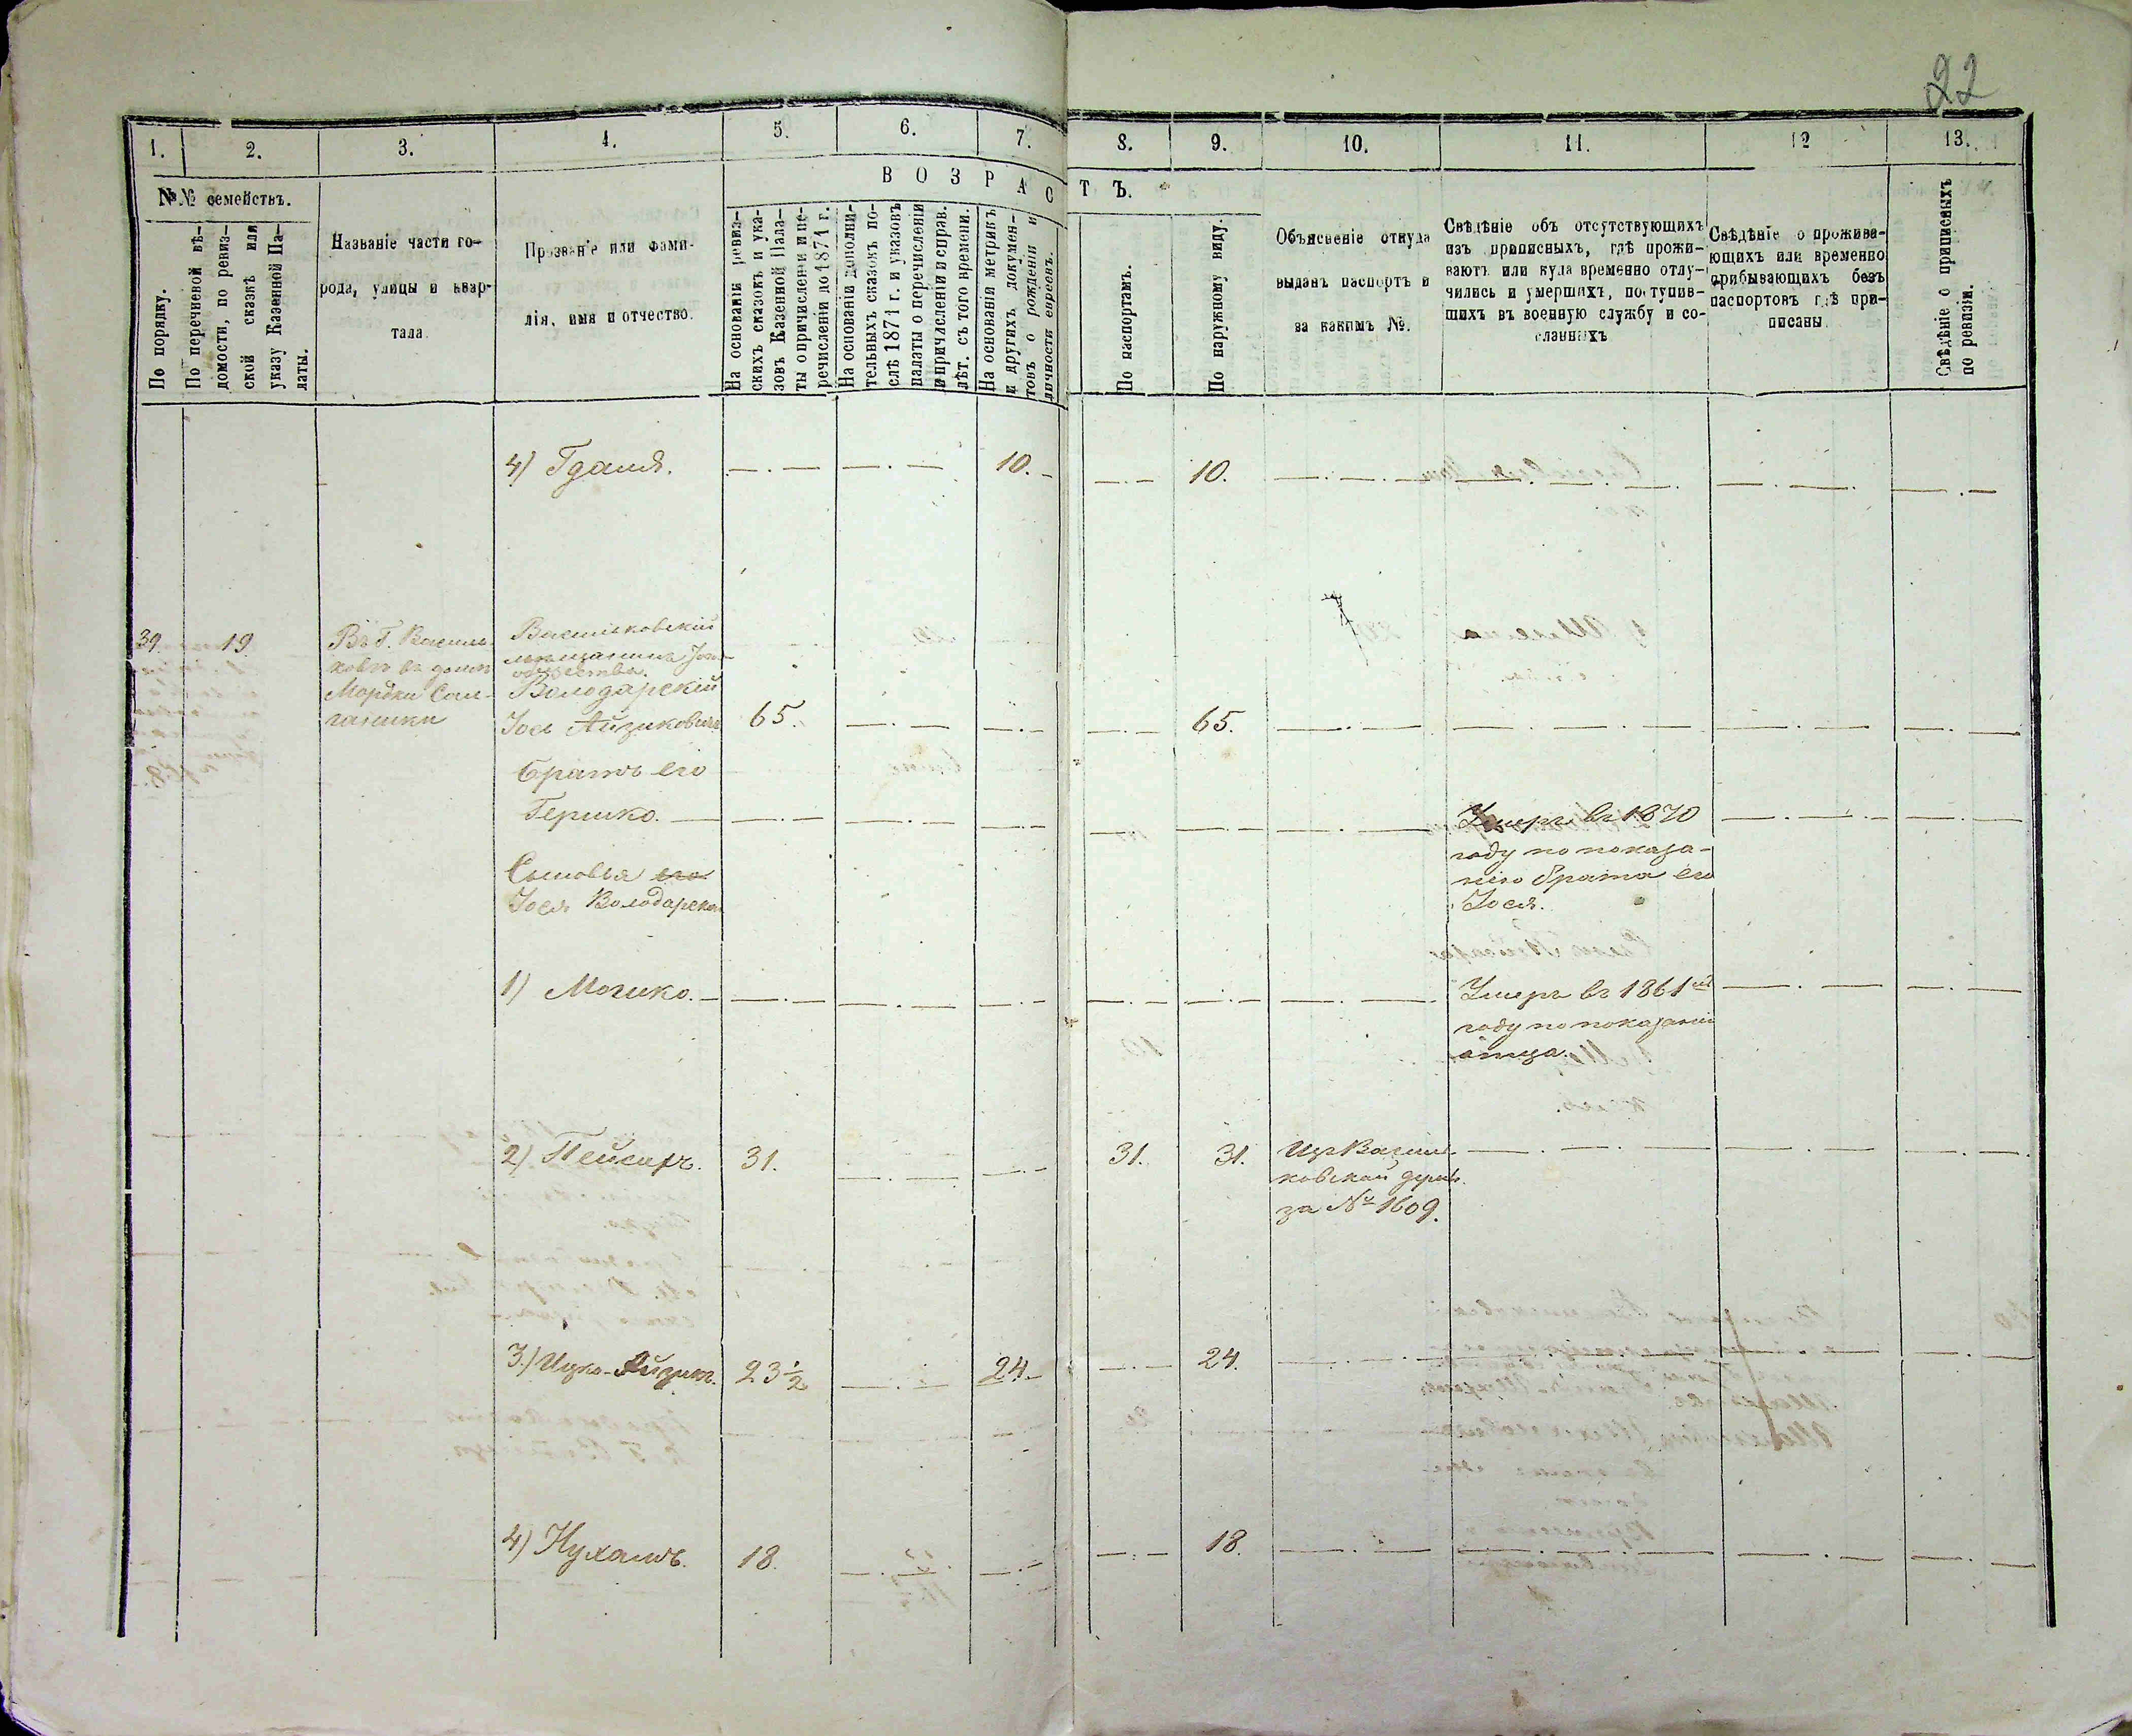 22
1. 2. 3. 4. 5. 6. 7. 8. 9. 10. 11. 12 13.
№№ семействъ.
По порядку.
По перечневой вѣ-
домости, по ревиз-
ской сказкѣ или
указу Казенной Па-
латы.
Названіе части го-
рода, улицы и квар-
тала
Прозваніе или фами-
лія, имя и отчество.
ВОЗРАСТЪ.
На основаніи ревиз-
скихъ сказокъ и ука-
зовъ Казенной Пала-
ты о причисленіи и пе-
речисленіи до 1871 г.
На основаніи дополни-
тельныхъ сказокъ по-
слѣ 1871 г. и указовъ
палаты о перечисленіи
и причисленіи и справ.
лѣт. съ того времени.
На основаніи метрикъ
и другихъ докумен-
товъ о рожденіи и
личности евреевъ.
По паспортамъ.
По наружному виду.
Объясненіе откуда
выданъ паспортъ и
за какимъ №.
Свѣдѣніе объ отсутствующихъ
изъ приписныхъ, гдѣ прожи-
ваютъ или куда временно отлу-
чились и умершихъ, поступив-
шихъ въ военную службу и со-
сланныхъ
Свѣдѣніе о прожива-
ющихъ или временно
прибывающихъ безъ
паспортовъ гдѣ при-
писаны
Свѣдѣніе о приписныхъ
по ревизіи.
4) Гдаля. 10. 10.
39. 19.
Въ Г. Василь-
ковѣ въ домѣ
Мордки
Васильковскій
мѣщанинъ
общества.
Володарскій
Іось Айзиковичъ 65. 65.
Братъ его
Гершко.
Умеръ въ 1870
году по показа-
нію брата его
Іося.
Сыновья его
Іося Володарска
1) Мошко.
Умеръ въ 1861м
году по показанію
отца.
2) Пейсахъ. 31. 31. 31.
Изъ Василь-
ковской думы
за № 1609.
3.) Ицко-Айзикъ. 23 1/2 24. 24.
4) Нухимъ. 18. 18.